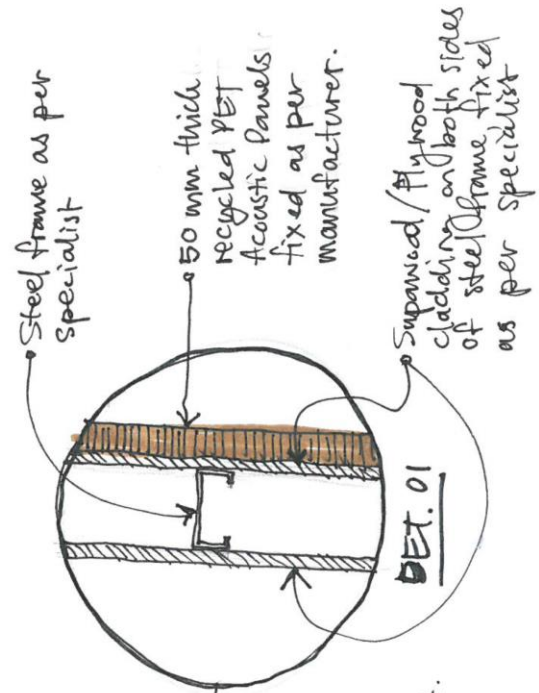 Steel frame as per
specialist
50 mm thick
recycled PET
Acoustic Panels
fixed as per
manufacturer.
Supawood/Plywood
cladding on both sides
of steel frame fixed
as per specialist
DET. 01